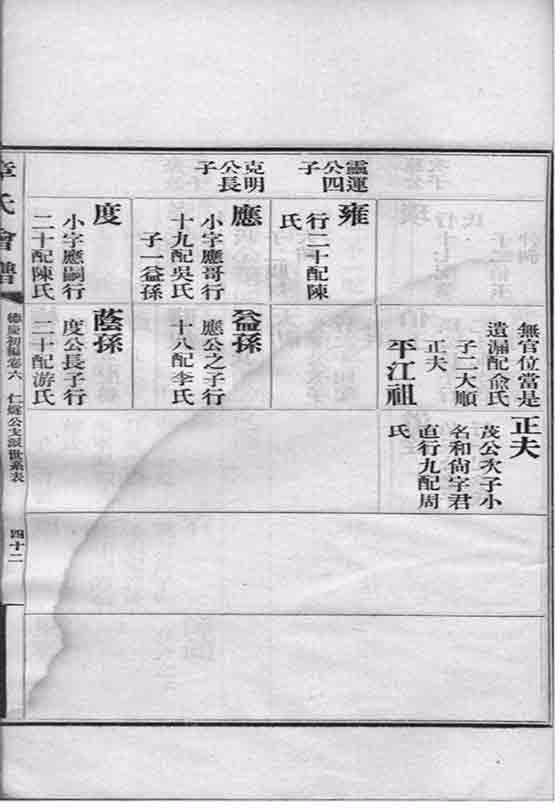 無官位當是
遺漏配俞氏
子二大順
正夫
平江祖
正夫
茂公次子小
名和尙字君
直行九配周
氏
靈運
公四
子
雍
行二十配陳
氏
克明
公長
子
應
小字應哥行
十九配吳氏
子一益孫
益孫
應公之子行
十八配李氏
度
小字應嗣行
二十配陳氏
蔭孫
度公長子行
二十配游氏
章氏會譜
德慶初編卷六
公支派世系表
四十二